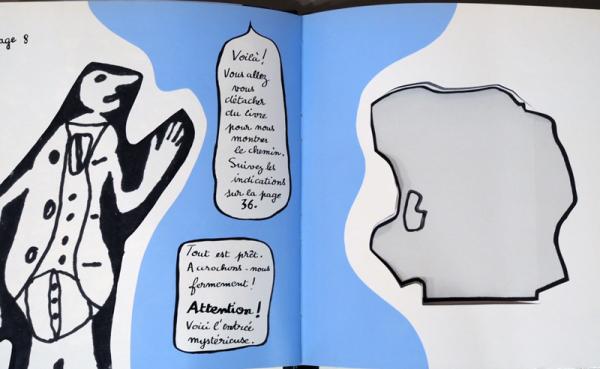 age 8
Voilà!
Vous allez
vous
détacher
du livre
pour nous
montrer
le chemin.
Suivez les
indications
sur la page
36.
Tout est prêt.
Accrochons-nous
fermement!
Attention!
Voici l'entrée
mystérieuse.